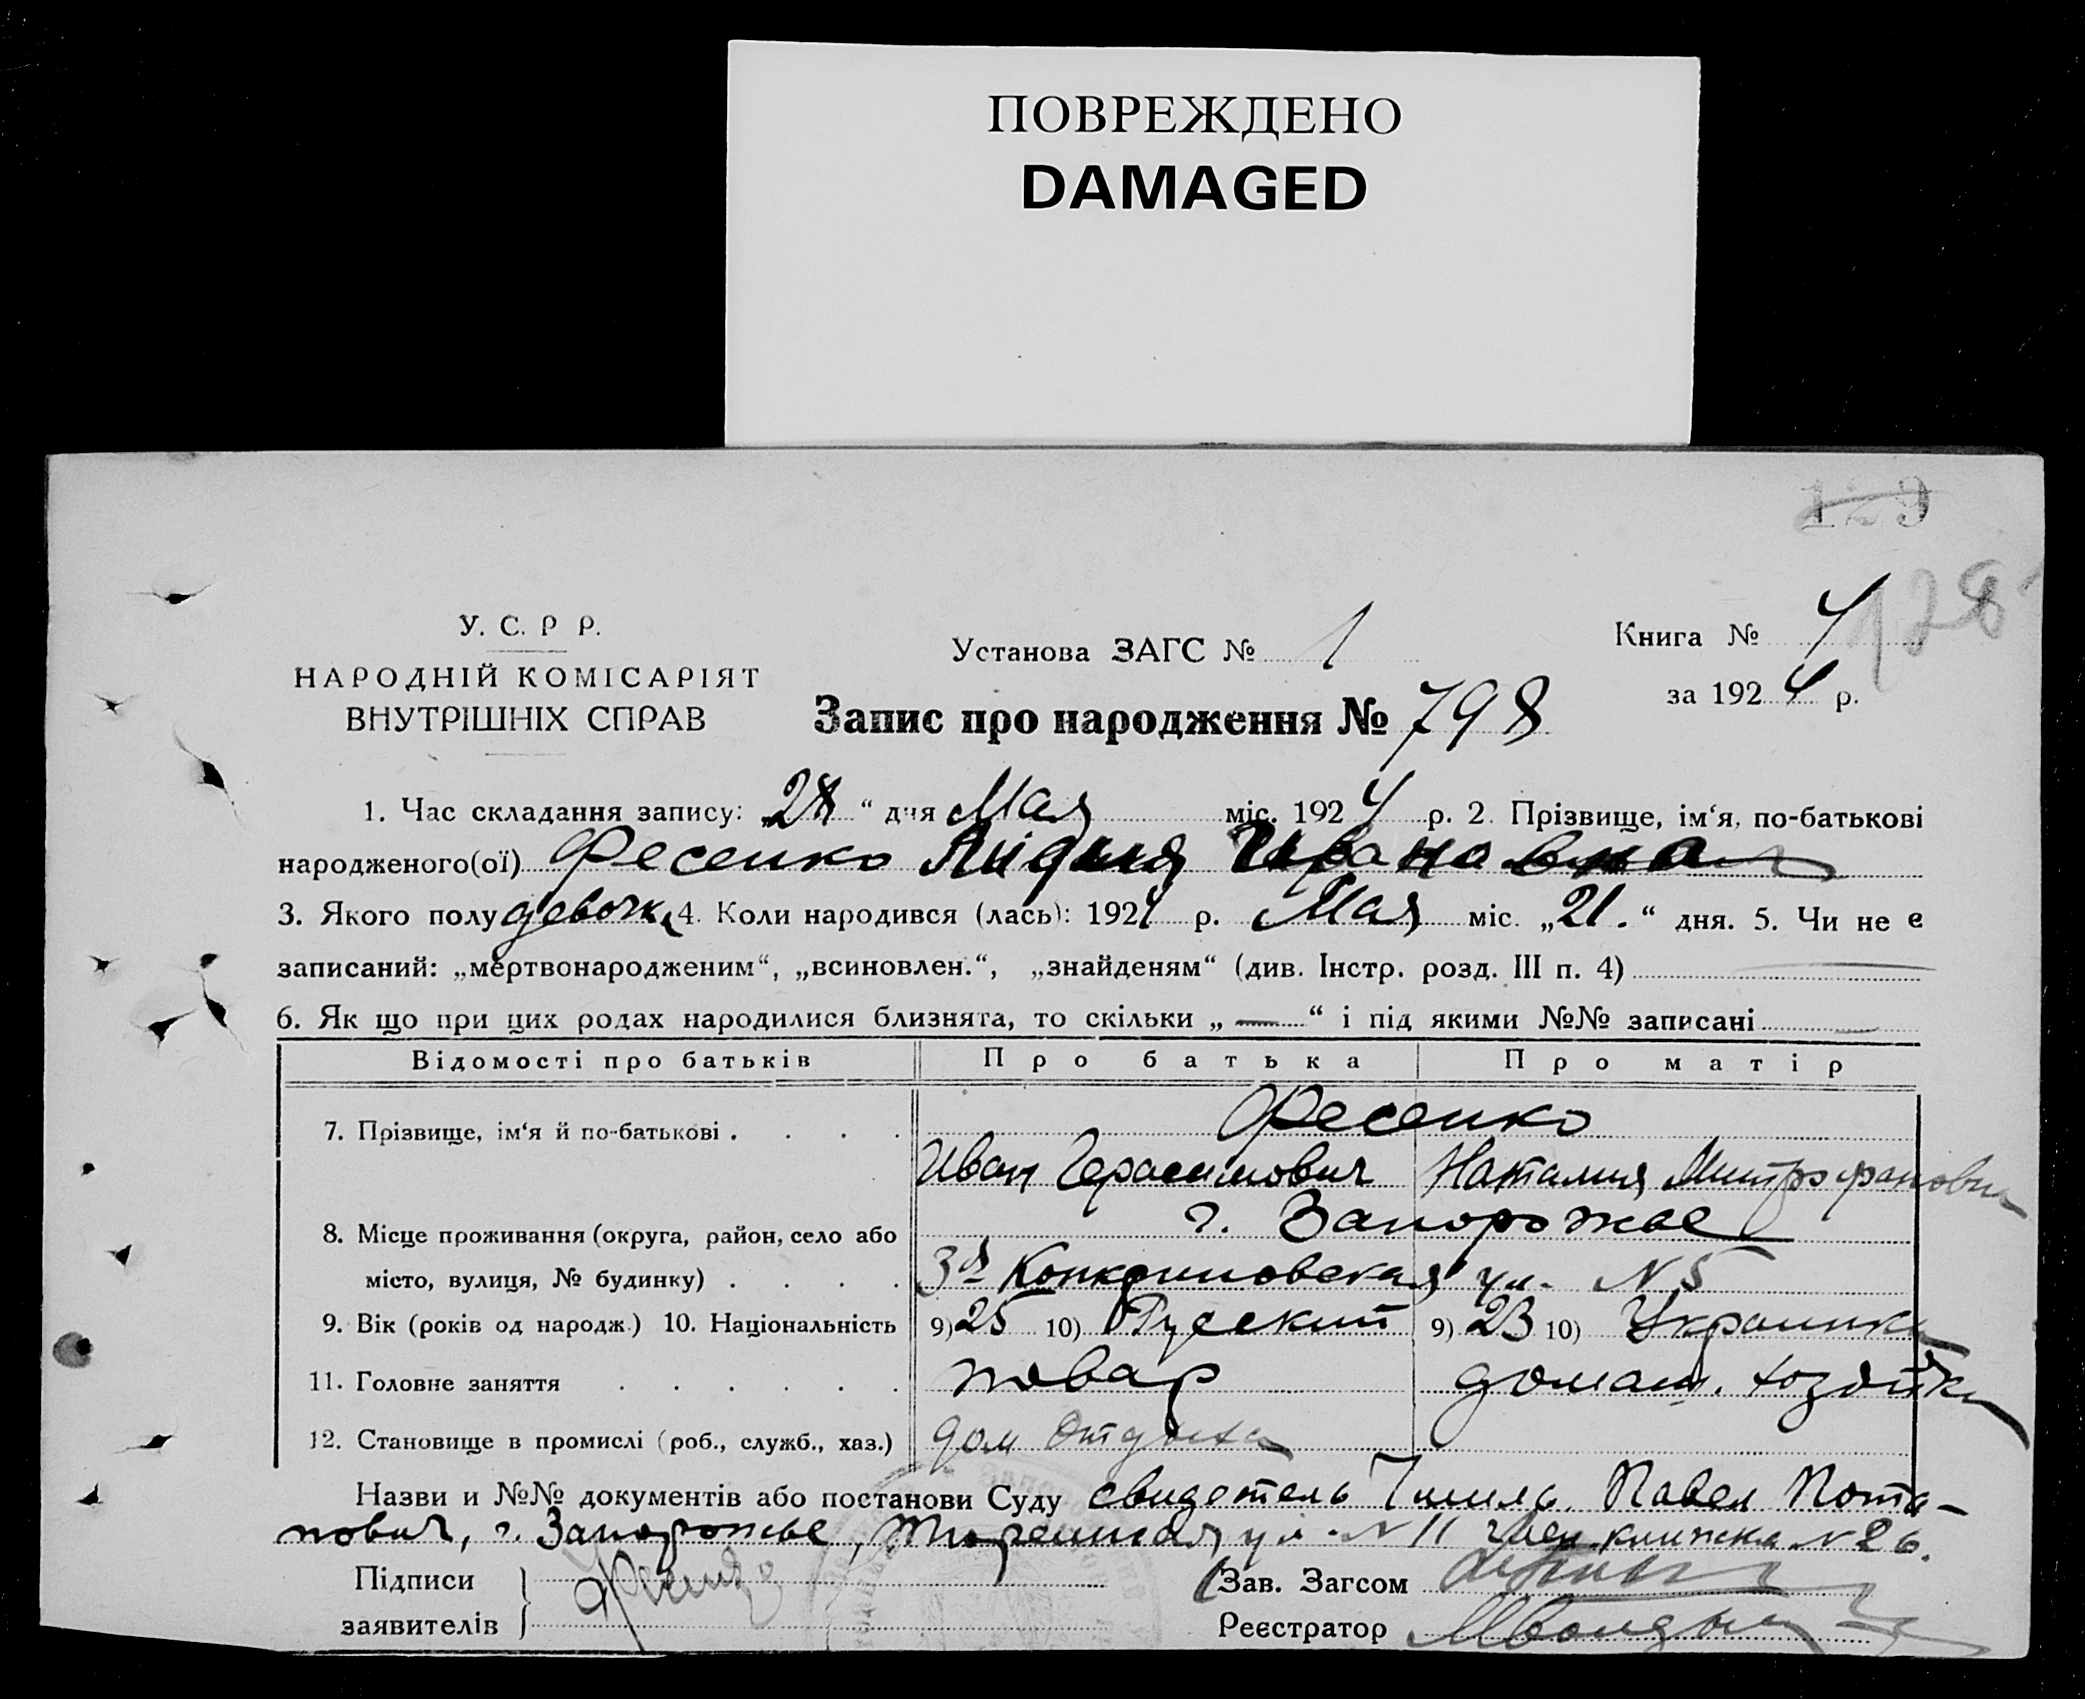 ПОВРЕЖДЕНО
DAMAGED
129
128
У. С. Р Р.
НАРОДНІЙ КОМІСАРІЯТ
ВНУТРІШНІХ СПРАВ
Установа ЗАГС № 1
Книга № 4
за 1924 р.
Запис про народження № 798
1. Час складання запису: „28“ дня Мая міс. 1924 р. 2. Прізвище, ім‘я, по-батькові
народженого(ої) Фесенко Лидия Ивановна
3. Якого полу девочка 4. Коли народився (лась): 1924 р. Мая міс. „21.“ дня. 5. Чи не є
записаний: „мертвонародженим“, „всиновлен.“, „знайденям“ (див. Інстр. розд. III п. 4) —
6. Як що при цих родах народилися близнята, то скільки „—“ і під якими №№ записані —
Відомості про батьків Про батька Про матір
7. Прізвище, ім‘я й по-батькові . . . . Фесенко
Иван Герасимович Наталия Митрофановна
8. Місце проживання (округа, район, село або г. Запорожье
місто, вулиця, № будинку) . . . . 3я ул. N 5
9. Вік (років од народж.) 10. Національність 9) 25 10) Русский 9) 23 10) Украинка
11. Головне заняття . . . . . . повар домаш. хозяйка
12. Становище в промислі (роб., служб., хаз.) дом Отдыха
Назви и №№ документів або постанови Суду свидетель Павел Пота-
пович, г. Запорожье, ул. N 11 член. книжка N 26.
Підписи
заявителів } Фесенко
Зав. Загсом
Реєстратор